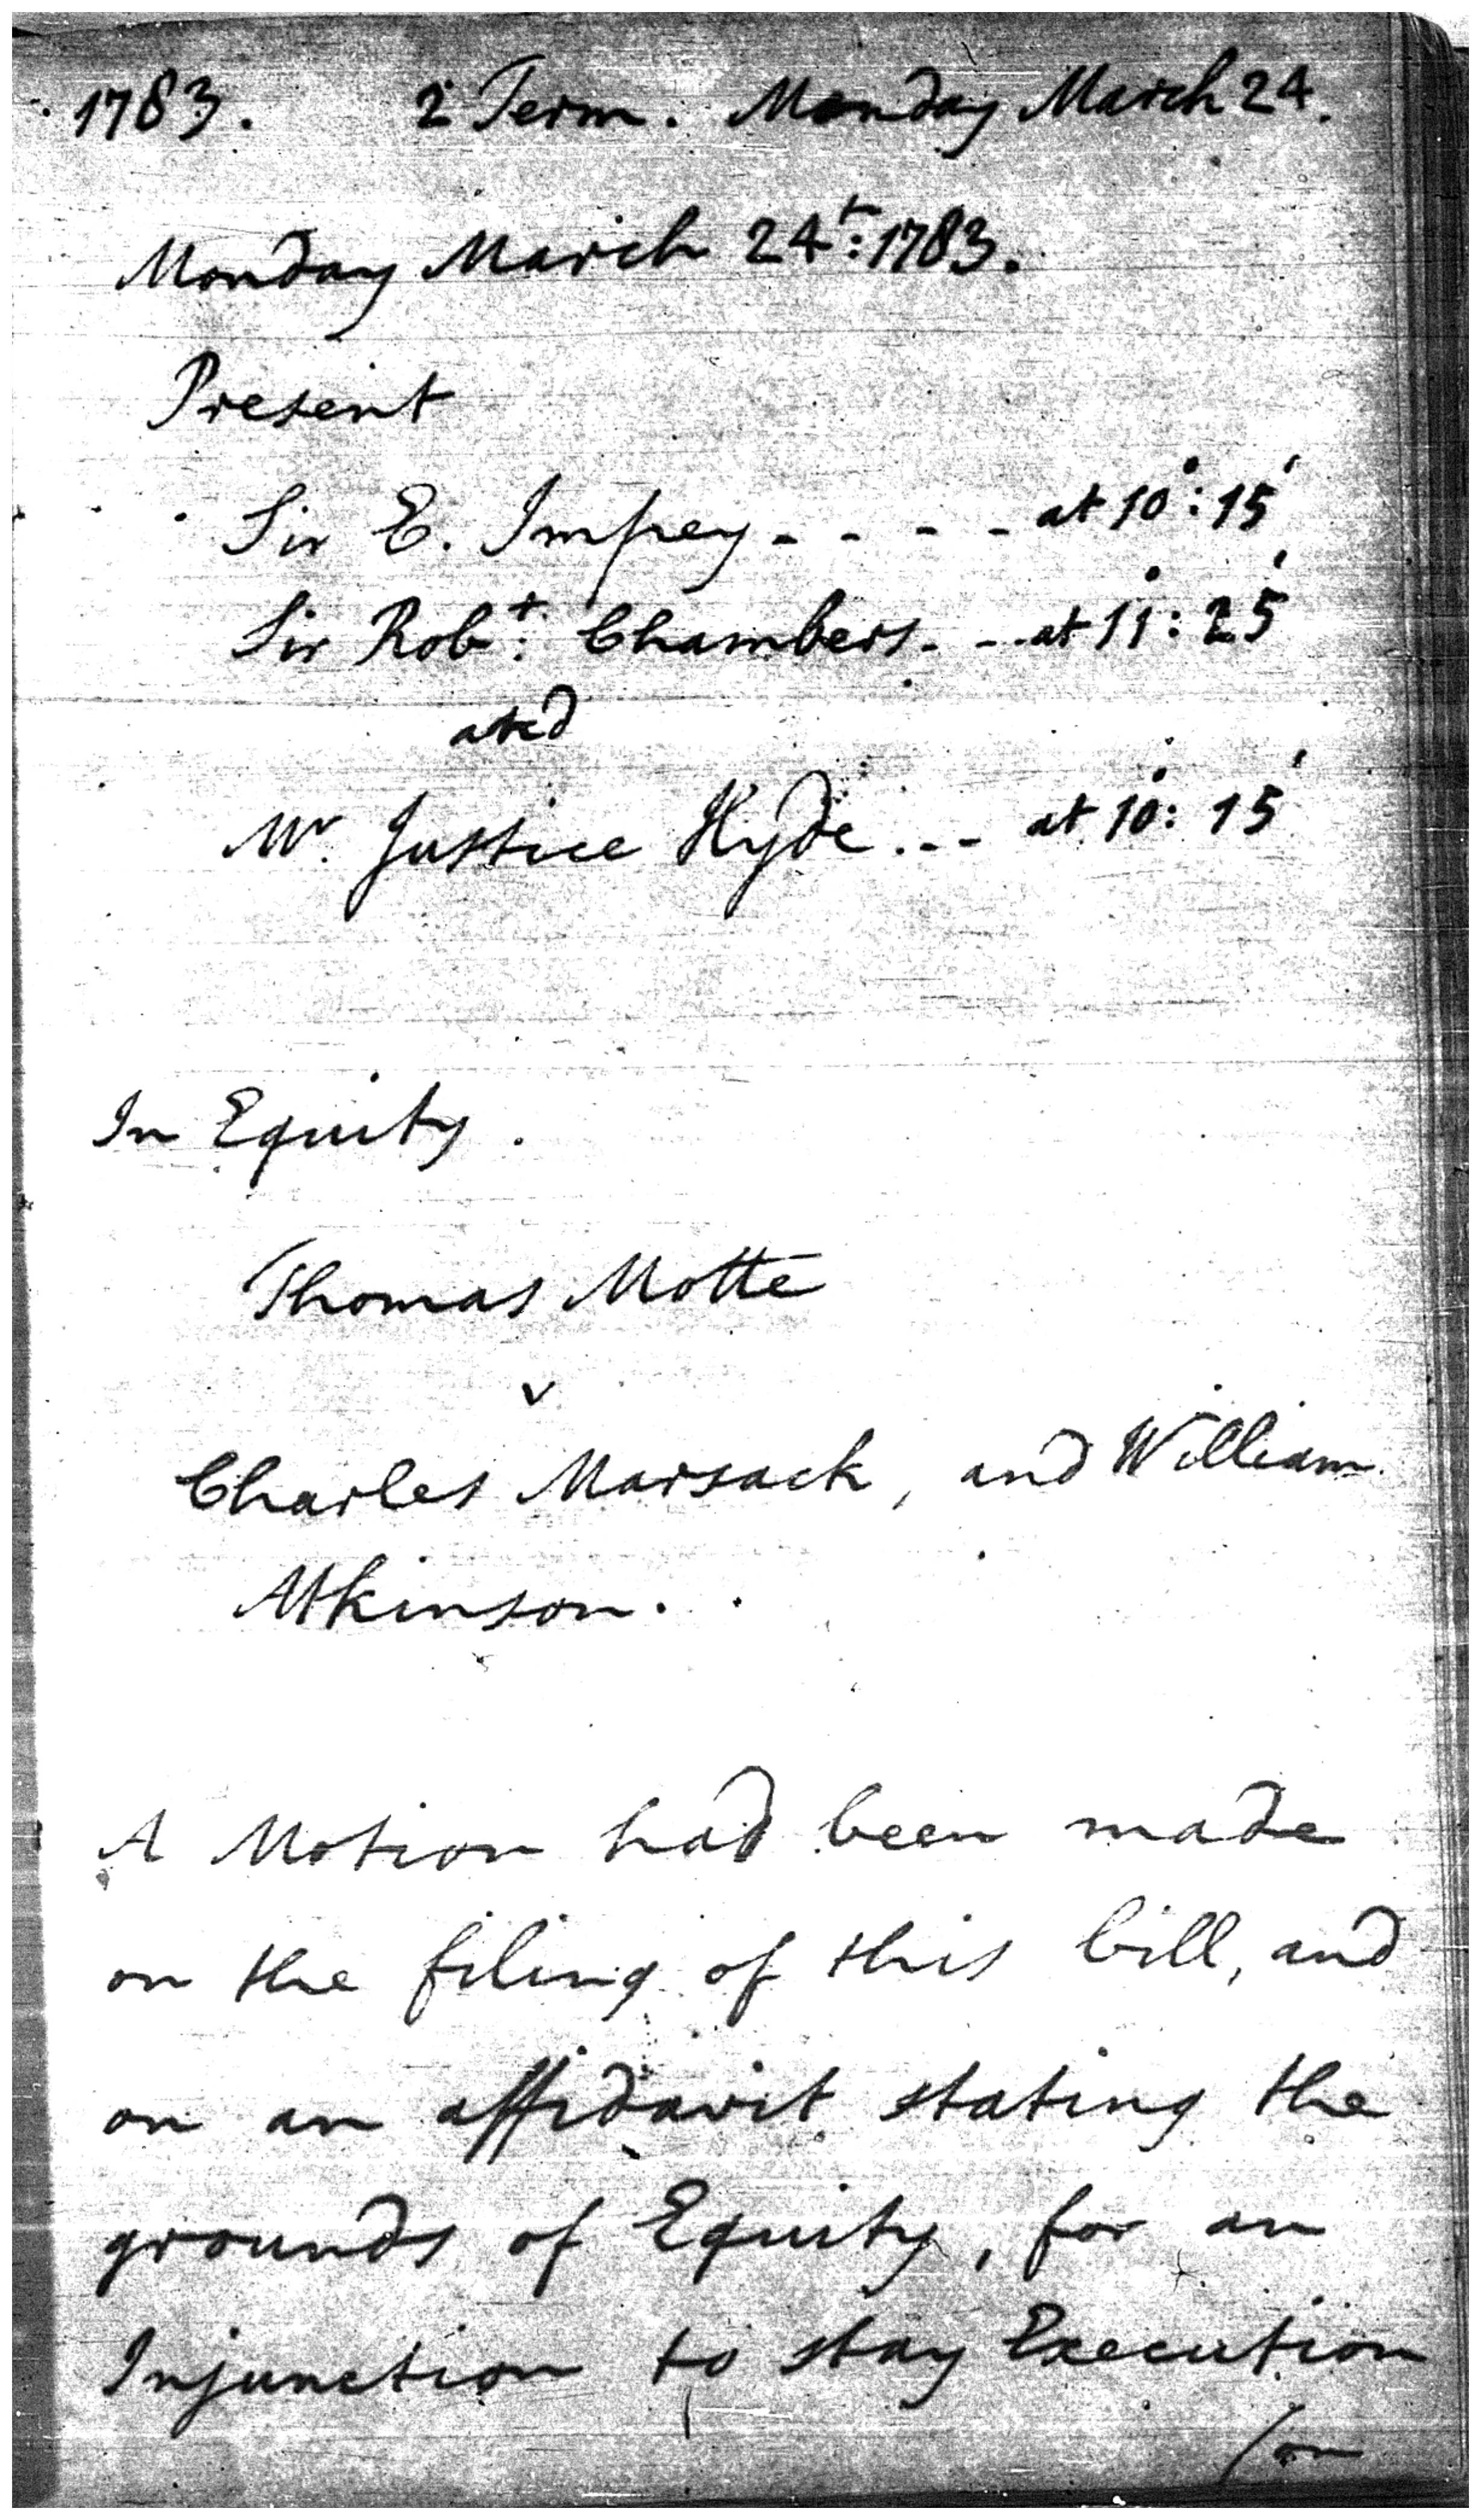 1783. 2 Term. Monday March 24.
Monday March 24th: 1783.
Present
Sir E. Impey - - - - at 10°: 15'
Sir Robt: Chambers - - at 11°: 25'
and
Mr. Justice Hyde . - - at 10°: 15'
In Equity.
Thomas Motte
v
Charles Marsack, and William
Atkinson.
A Motion had been made
on the filing of this bill, and
on an affidavit stating the
grounds of Equity, for an
Injunction to stay Execution
(on